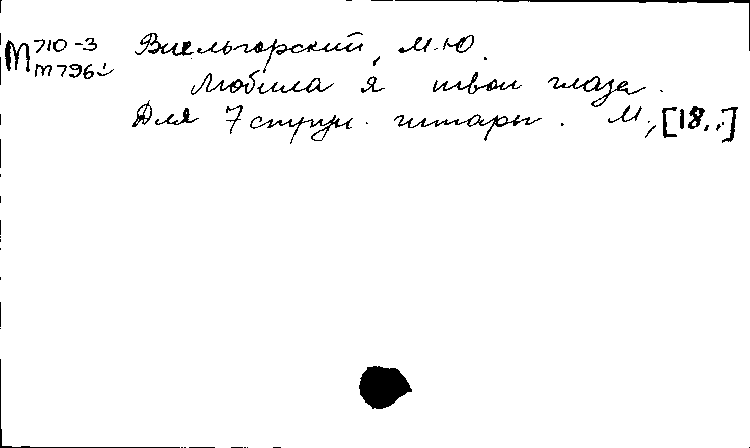 М 710-3 Виельгорский, М.Ю.
m 796
Любила я твои глаза.
Для 7 струн. гитары. М., [18..]